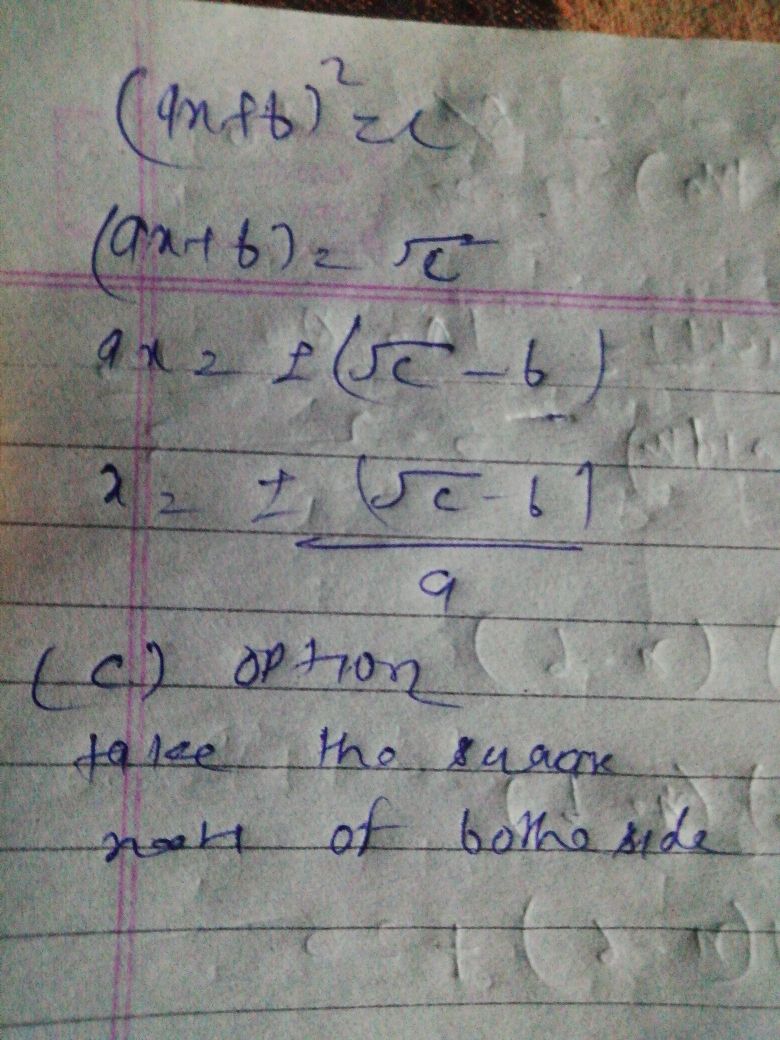 (ax+b)² = c
(ax+b) = √c
ax = ±(√c - b)
x = ± (√c - b)
a
(c) option
take the suare
root of bothe side